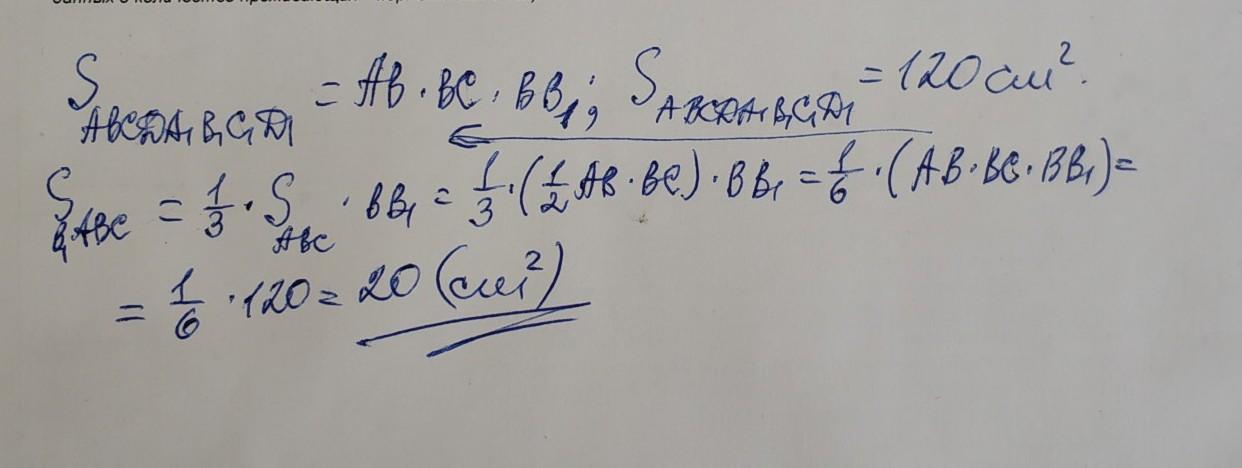 S ABCDA₁B₁C₁D₁ = AB · BC · BB₁; S ABCDA₁B₁C₁D₁ = 120 см².
S B₁ABC = 1/3 · S ABC · BB₁ = 1/3 · (1/2 AB · BC) · BB₁ = 1/6 · (AB · BC · BB₁) =
= 1/6 · 120 = 20 (см²)